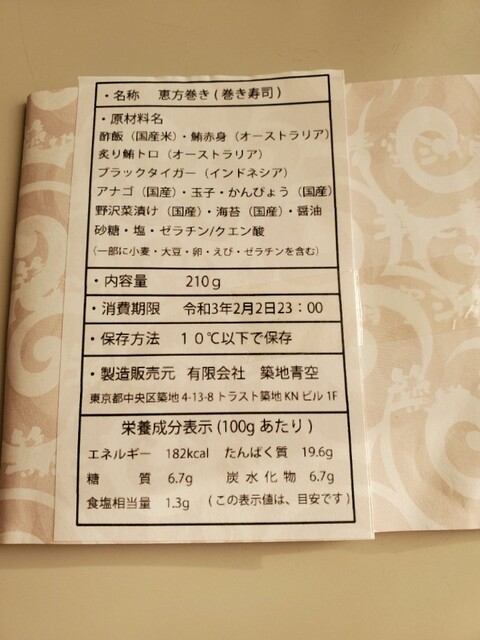 ・名称　恵方巻き(巻き寿司)
・原材料名
酢飯（国産米）・鮪赤身（オーストラリア）
炙り鮪トロ（オーストラリア）
ブラックタイガー（インドネシア）
アナゴ（国産）・玉子・かんぴょう（国産）
野沢菜漬け（国産）・海苔（国産）・醤油
砂糖・塩・ゼラチン/クエン酸
（一部に小麦・大豆・卵・えび・ゼラチンを含む）
・内容量　210g
・消費期限　令和3年2月2日23：00
・保存方法　１０℃以下で保存
・製造販売元　有限会社　築地青空
東京都中央区築地 4-13-8 トラスト築地 KN ビル 1F
栄養成分表示(100gあたり)
エネルギー　182kcal　たんぱく質　19.6g
糖　質　6.7g　炭水化物　6.7g
食塩相当量　1.3g　(この表示値は、目安です)